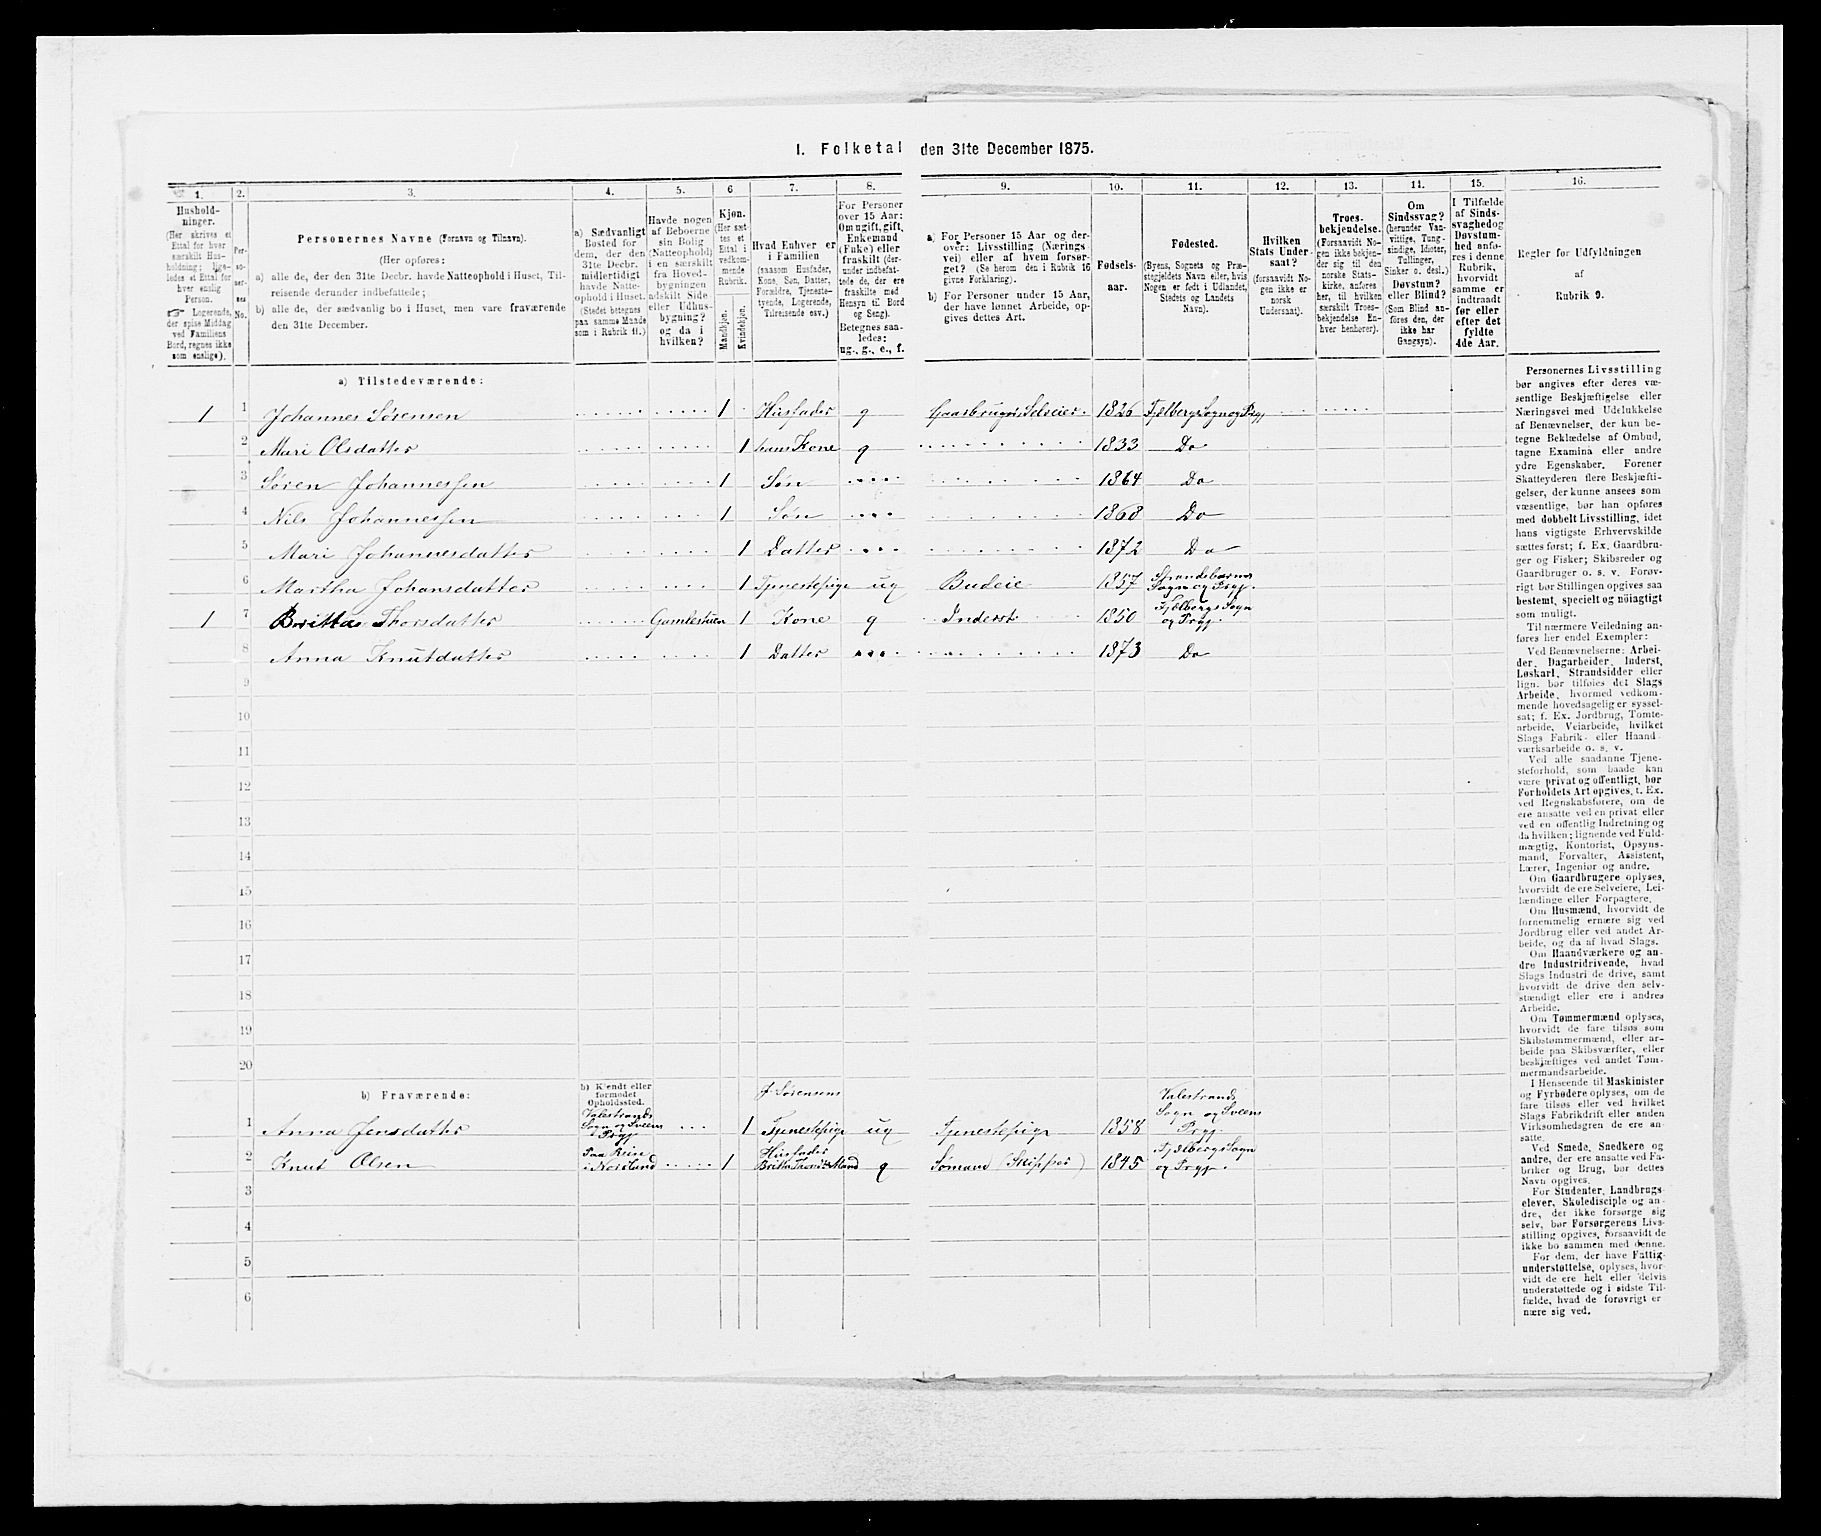 1. Folketal den 31te December 1875.
1. 2. 3. 4. 5. 6 7. 8. 9. 10. 11. 12. 13. 14. 15. 16.
Hushold-
ninger.
(Her skrives et
Ettal for hver
særskilt Hus-
holdning; lige-
ledes et Ettal for
hver enslig
Person.
☞ Logerende,
der spise Middag
ved Familiens
Bord, regnes ikke
som enslige).
Per-
so-
ner-
nes
No.
Personernes Navne (Fornavn og Tilnavn).
(Her opføres:
a) alle de, der den 31te Decbr. havde Natteophold i Huset, Til-
reisende derunder indbefattede;
b) alle de, der sædvanlig bo i Huset, men vare fraværende
den 31te December.
a) Sædvanligt
Bosted for
dem, der den
31te Decbr.
midlertidigt
havde Natte-
ophold i Huset.
(Stedet betegnes
paa samme Maade
som i Rubrik 11.)
Havde nogen
af Beboerne
sin Bolig
(Natteophold)
i en særskilt
fra Hoved-
bygningen
adskilt Side
eller Udhus-
bygning?
og da i
hvilken?
Kjøn.
(Her sæt
tes et
Ettal i
vedkom-
mende
Rubrik.
Mandkjøn.
Kvindekjøn.
Hvad Enhver er
i Familien
(saasom Husfader,
Kone, Søn, Datter,
Forældre, Tjeneste-
tyende, Logerende,
Tilreisende osv.)
For Personer
over 15 Aar:
Om ugift, gift,
Enkemand
(Enke) eller
fraskilt (der-
under indbefat-
tede de, der ere
fraskilte med
Hensyn til Bord
og Seng).
Betegnes saa-
ledes:
ug., g., e., f.
a) For Personer 15 Aar og der-
over: Livsstilling (Nærings
vei) eller af hvem forsør-
get? (Se herom den i Rubrik 16
givne Forklaring).
b) For Personer under 15 Aar,
der have lønnet Arbeide, op-
gives dettes Art.
Fødsels-
aar.
Fødested.
(Byens, Sognets og Præ-
stegjeldets Navn eller, hvis
Nogen er født i Udlandet,
Stedets og Landets
Navn).
Hvilken
Stats Under-
saat?
(forsaavidt No-
gen ikke er
norsk
Undersaat).
Troes-
bekjendelse.
(Forsaavidt No-
gen ikke bekjen-
der sig til den
norske Stats-
kirke, anføres
her, til hvilken
særskilt Troes-
bekjendelse En-
hver henhører).
Om
Sindssvag?
(herunder Van-
vittige, Tung-
sindige, Idioter,
Tullinger,
Sinker o. desl.)
Døvstum?
eller Blind?
(Som Blind an-
føres den, der
ikke har
Gangsyn).
I Tilfælde
af Sinds-
svaghed og
Døvstum-
hed anfø-
res i denne
Rubrik,
hvorvidt
samme er
indtraadt
før eller
efter det
fyldte
4de Aar.
Regler for Udfyldningen
af
Rubrik 9.
a) Tilstedeværende:
1 1 Johannes Sørensen 1 Husfader g Gaardbruger Selveier. 1826 Fjelbergs Sogn og Prgj
2 Mari Olsdatter 1 hans Kone g 1833 Do
3 Søren Johannessen 1 Søn 1864 Do
4 Nils Johannessen 1 Søn 1868 Do
5 Mari Johannesdatter 1 Datter 1872 Do
6 Martha Johansdatter 1 Tjenestepige ug Budeie 1857 Strandebarms Sogn og Prgj.
1 7 Britta Thorsdatter Gamlestuen 1 Kone g Inderst 1850 Fjelbergs Sogn og Prgj.
8 Anna Knutdatter 1 Datter 1873 Do
9
10
11
12
13
14
15
16
17
18
19
20
b) Fraværende:
b) Kjendt eller
formodet
Opholdssted.
1 Anna Jensdatter Valestrands Sogn og Sveens Prgj 1 J. Sørensens Tjenestepige ug Tjenestepige 1858 Valestrands Sogn og Sveens Prgj.
2 Knut Olsen Paa Reise i Nordland 1 Husfader Britta Thorsd. Mand g Sømand (Skipper) 1845 Fjelbergs Sogn og Prgj.
3
4
5
6
Personernes Livsstilling
bør angives efter deres væ-
sentlige Beskjæftigelse eller
Næringsvei med Udelukkelse
af Benævnelser, der kun be-
tegne Beklædelse af Ombud,
tagne Examina eller andre
ydre Egenskaber. Forener
Skatteyderen flere Beskjæfti-
gelser, der kunne ansees som
væsentlige, bør han opføres
med dobbelt Livsstilling, idet
hans vigtigste Erhvervskilde
sættes først; f. Ex. Gaardbru-
ger og Fisker; Skibsreder og
Gaardbruger o. s. v. Forøv-
rigt bør Stillingen opgives saa
bestemt, specielt og nøiagtigt
som muligt.
Til nærmere Veiledning an-
føres her endel Exempler:
Ved Benævnelserne: Arbei-
der, Dagarbeider, Inderst,
Løskarl, Strandsidder eller
lign. bør tilføies det Slags
Arbeide, hvormed vedkom-
mende hovedsagelig er syssel-
sat; f. Ex. Jordbrug, Tomte-
arbeide, Veiarbeide, hvilket
Slags Fabrik- eller Haand-
værksarbeide o. s. v.
Ved alle saadanne Tjene-
steforhold, som baade kan
være privat og offentligt, bør
Forholdets Art opgives, t. Ex.
ved Regnskabsførere, om de
ere ansatte ved en privat eller
ved en offentlig Indretning og
da hvilken; lignende ved Fuld-
mægtig, Kontorist, Opsyns-
mand, Forvalter, Assistent,
Lærer, Ingeniør og andre.
Om Gaardbrugere oplyses,
hvorvidt de ere Selveiere, Lei-
lændinge eller Forpagtere.
Om Husmænd, hvorvidt de
fornemmelig ernære sig ved
Jordbrug eller ved andet Ar-
beide, og da af hvad Slags.
Om Haandværkere og an-
dre Industridrivende, hvad
Slags Industri de drive, samt
hvorvidt de drive den selv-
stændigt eller ere i andres
Arbeide.
Om Tømmermænd oplyses,
hvorvidt de fare tilsøs som
Skibstømmermænd, eller ar-
beide paa Skibsværfter, eller
beskjæftiges ved andet Tøm-
mermandsarbeide.
I Henseende til Maskinister
og Fyrbødere oplyses, om de
fare tilsøs eller ved hvilket
Slags Fabrikdrift eller anden
Virksomhedsgren de ere an-
satte.
Ved Smede, Snedkere og
andre, der ere ansatte ved Fa-
briker og Brug, bør dettes
Navn opgives.
For Studenter, Landbrugs-
elever, Skoledisciple og an-
dre, der ikke forsørge sig
selv, bør Forsørgerens Livs-
stilling opgives, forsaavidt de
ikke bo sammen med denne.
For dem, der have Fattig-
understøttelse, oplyses, hvor-
vidt de ere helt eller delvis
understøttede og i sidste Til-
fælde, hvad de forøvrigt er-
nære sig ved.